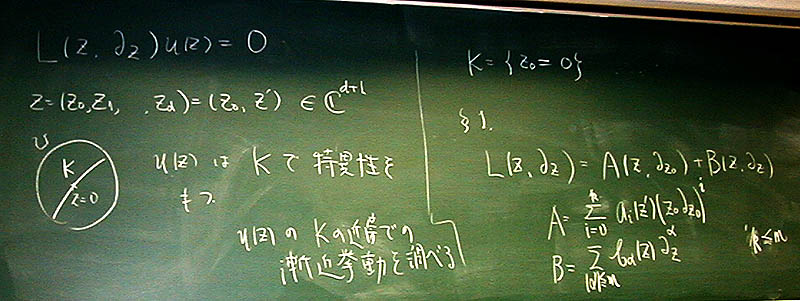 L(z, ∂z)u(z) = 0
z = (z₀, z₁, , z_d) = (z₀, z') ∈ ℂ^{d+1}
U
K
z=0
u(z) は K で 特異性を
もつ
u(z) の Kの近傍での
漸近挙動を調べる
K = {z₀ = 0}
§1.
L(z, ∂z) = A(z, ∂z₀) + B(z, ∂z)
A = Σ_{i=0}^{k} a_i(z')(z₀∂z₀)^i
B = Σ_{|α|≤m} b_α(z)∂z^α
k≤m